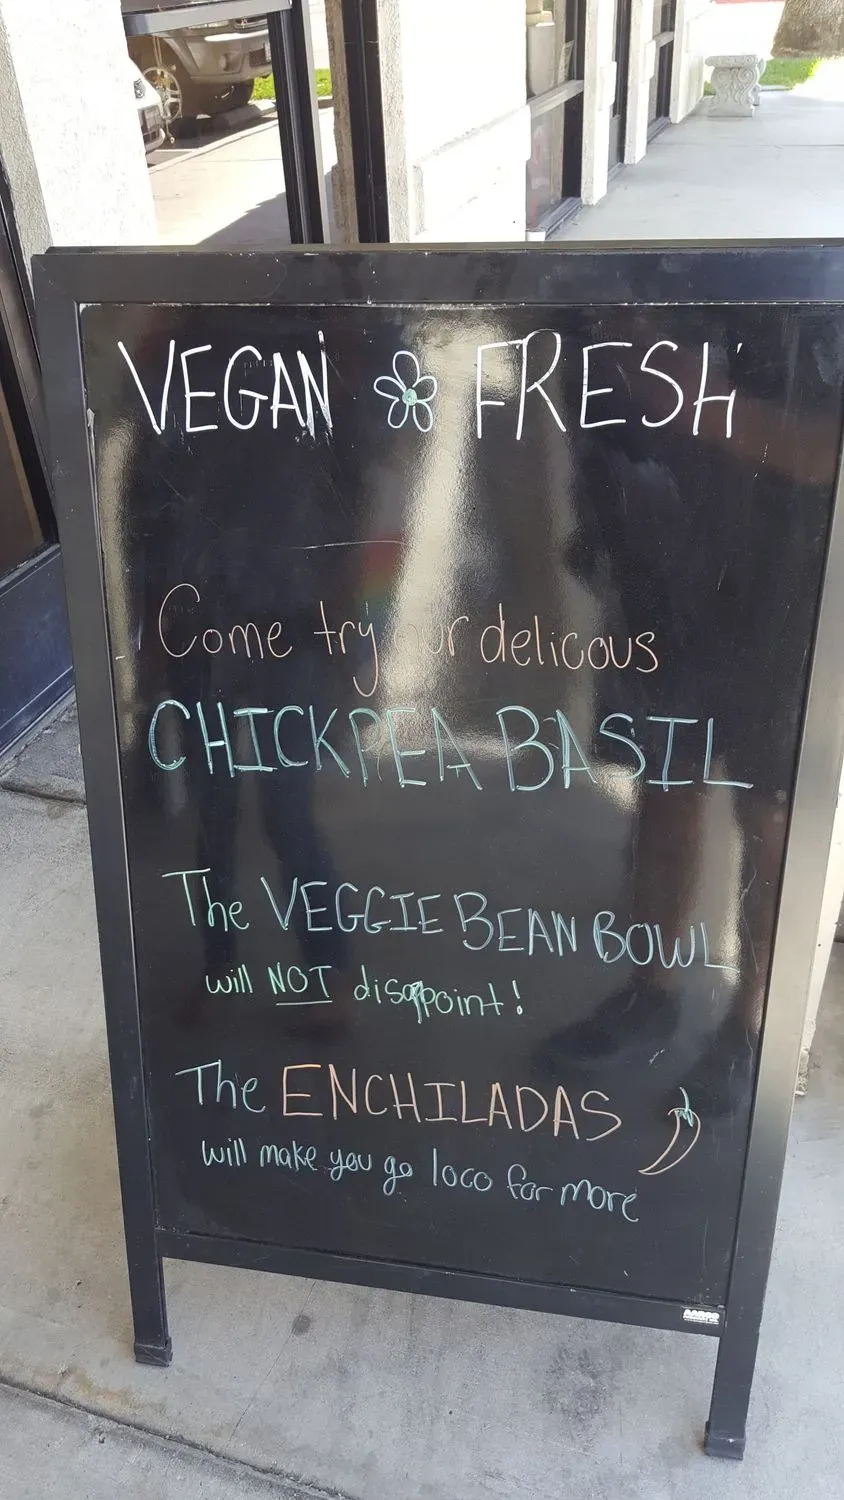 VEGAN FRESH
Come try our delicous
CHICKPEA BASIL
The VEGGIE BEAN BOWL
will NOT disappoint!
The ENCHILADAS
will make you go loco for more
AARCO